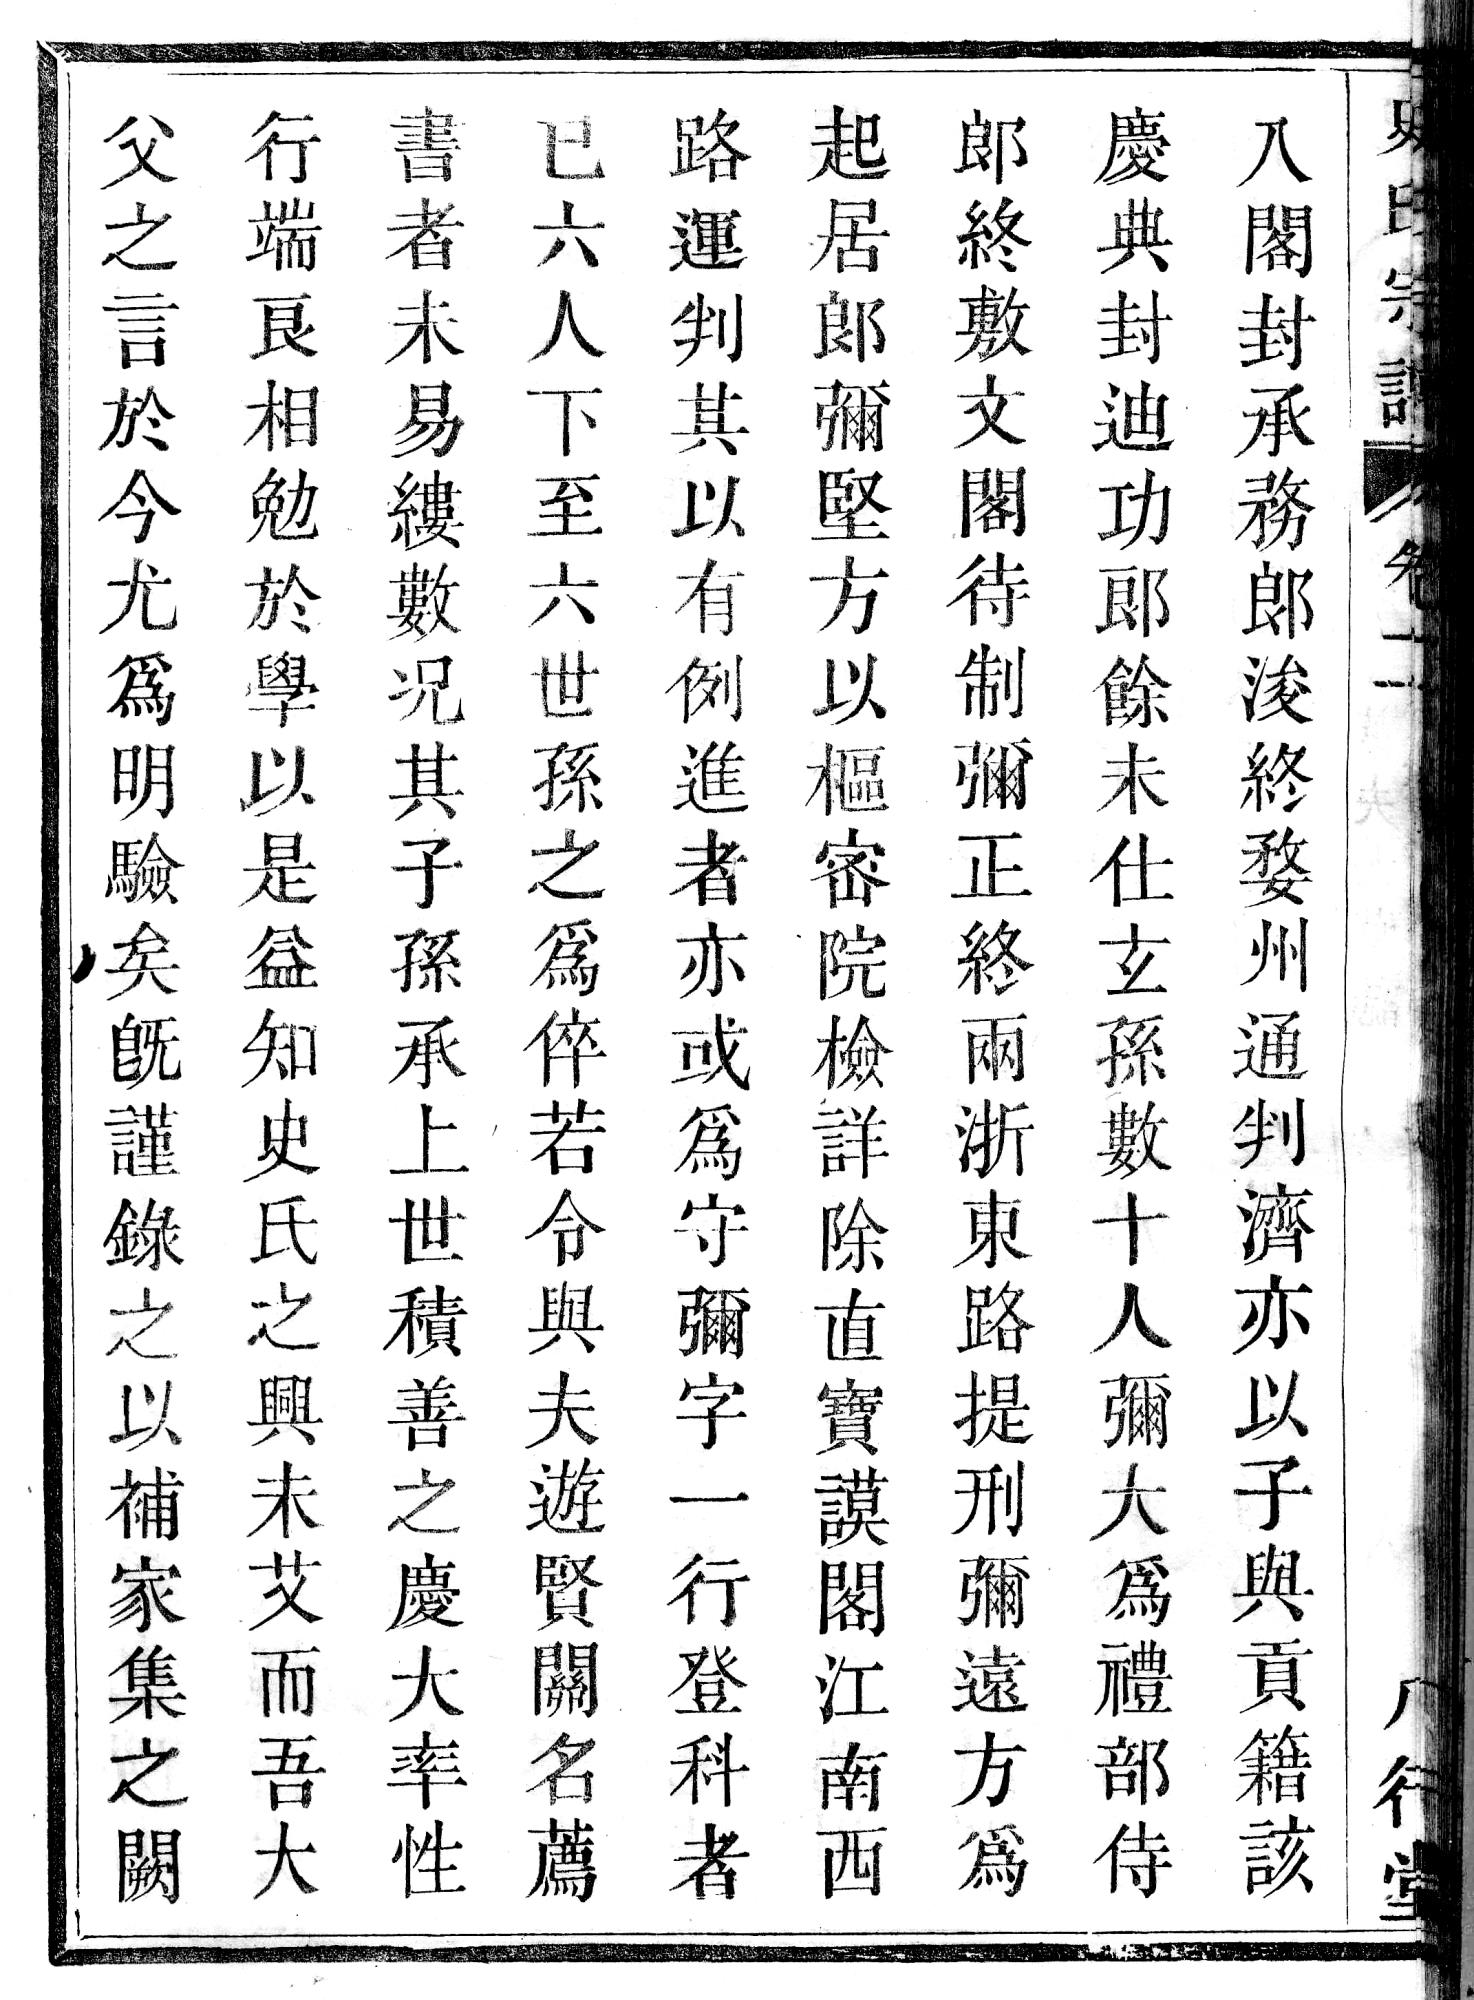 史氏宗譜 卷十一 八行堂
入閣封承務郎浚終婺州通判濟亦以子與貢籍該
慶典封迪功郎餘未仕玄孫數十人彌大爲禮部侍
郎終敷文閣待制彌正終兩浙東路提刑彌遠方爲
起居郎彌堅方以樞密院檢詳除直寶謨閣江南西
路運判其以有例進者亦或爲守彌字一行登科者
已六人下至六世孫之爲倅若令與夫遊賢關名薦
書者未易縷數况其子孫承上世積善之慶大率性
行端良相勉於學以是益知史氏之興未艾而吾大
父之言於今尤爲明驗矣旣謹錄之以補家集之闕